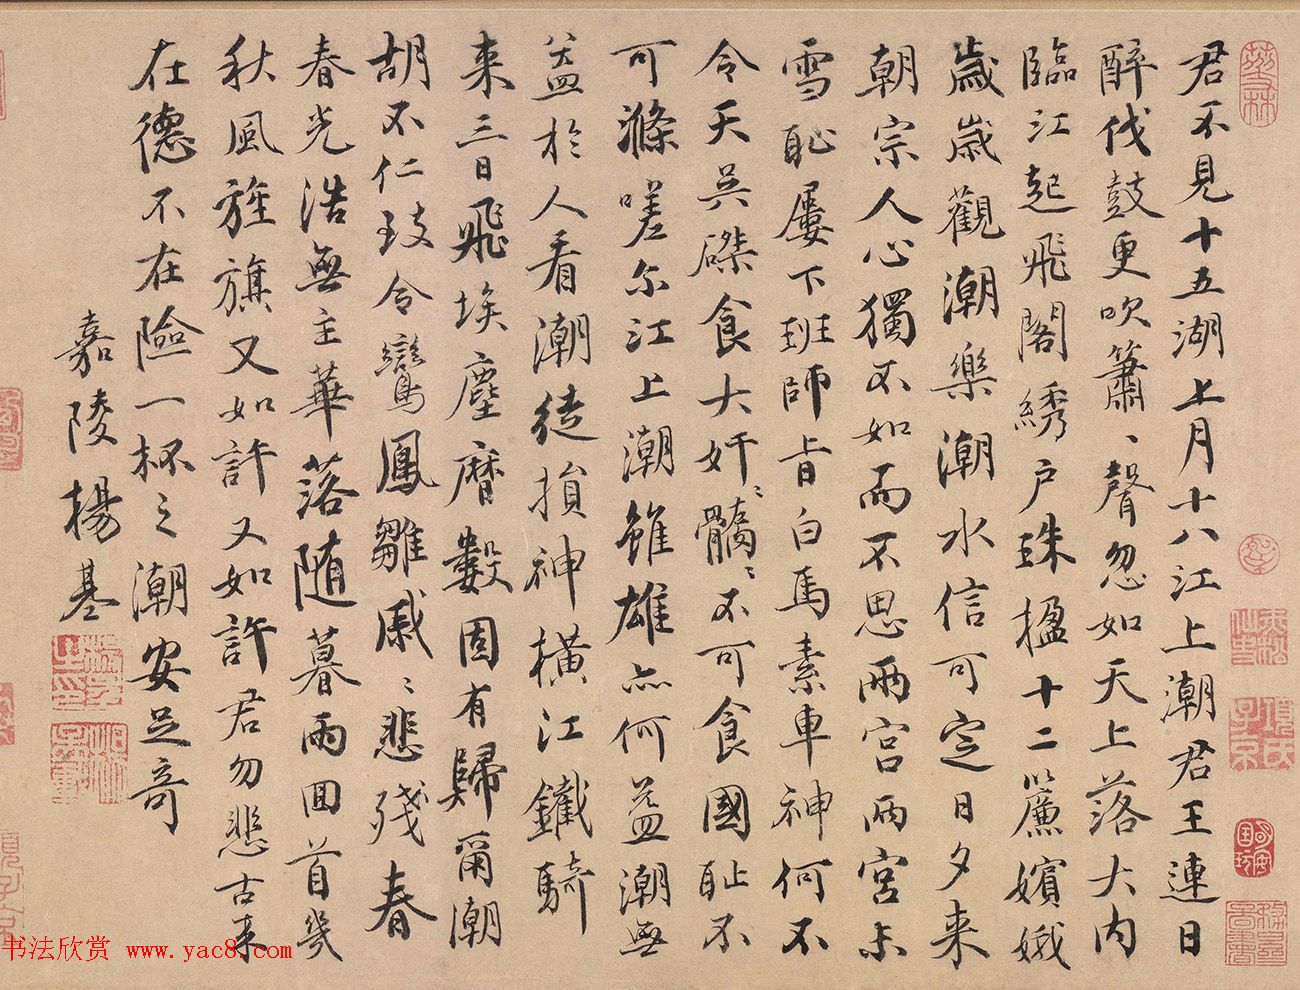 君不見十五湖上月十八江上潮君王連日
醉伐鼓更吹簫、聲忽如天上落大内
臨江起飛閣綉户珠楹十二簾嬪娥
歲歲觀潮樂潮水信可定日夕来
朝宗人心獨不如而不思兩宫兩宫尚
雪恥屢下班師旨白馬素車神何不
令天吴磔食大奸、髇、不可食國恥不
可滌嗟尔江上潮雖雄亦何益潮無
益於人看潮徒損神橫江鐵騎
来三日飛埃塵曆數固有歸爾潮
胡不仁致令鸞鳳雛戚、悲殘春
春光浩無主華落随暮雨回首幾
秋風旌旗又如許又如許君勿悲古来
在德不在險一杯之潮安足奇
嘉陵楊基
书法欣赏 www.yac8.com